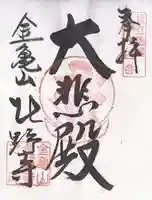 奉拝
大悲殿
金亀山 比野寺